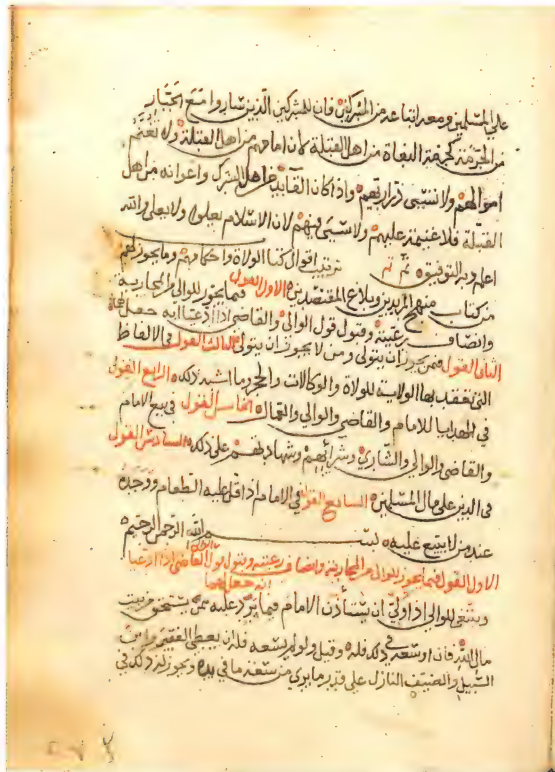 على المسلمين ومعه اتباعه من المشركين فان المشركين الذين ساروا مع الجبار
من الحرمة كحرمة البغاة من اهل القبلة لان امامهم من اهل القبلة ولا تغنم
اموالهم ولا تسبى ذراريهم واذا كان القايد من اهل الشرك واعوانه من اهل
القبلة فلا غنيمة عليهم ولا سبى فيهم لان الاسلام يعلو ولا يعلى والله
اعلم وبه التوفيق تم تم ترتيب اقوال كتاب الولاة واحكامهم وما يجوز لهم
من كتاب منهج المريدين وبلاغ المقتصدين الاول القول فيما يجوز للوالي من المحاربة
وانصاف رعيته وقبول قول الوالي والقاضي اذا ادعيا انه جعل لهما
الثاني القول فمن يجوز ان يتولى ومن لا يجوز ان يتولى الثالث القول في الالفاظ
التي تنعقد بها الولاية للولاة والوكالات والحجر وما اشبه ذلك الرابع القول
في الهدايا للامام والقاضي والوالي والعمال الخامس القول في بيع الامام
والقاضي والوالي والشاري وشرائهم وشهادتهم على ذلك السادس القول
في الدين على مال المسلمين السابع القول في الامام اذا قل عليه الطعام ووجده
عند من لا يبيع عليه بسم الله الرحمن الرحيم
الاول القول فيما يجوز للوالي من المحاربة وانصاف رعيته وقبول قول الوالي والقاضي اذا ادعيا
انه جعل لهما
وينبغي للوالي اذا ولي ان يستأذن الامام فيما يرد عليه ممن يستحق من بيت
مال الله فان اوسعه في ذلك فله وقيل ولو لم يسعه فله ان يعطى الفقير وابن
السبيل والضيف النازل على قدر ما يرى من سعة ما في يده ويجوز له ذلك في